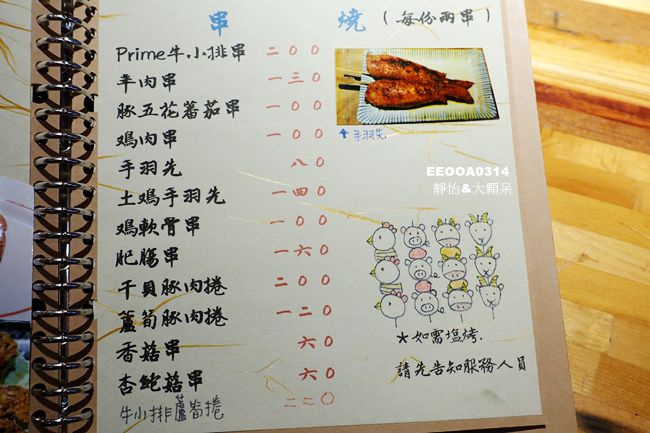 串 燒 (每份兩串)
Prime牛小排串 二〇〇
羊肉串 一三〇
豚五花蕃茄串 一〇〇
鷄肉串 一〇〇
手羽先 八〇
土鷄手羽先 一四〇
鷄軟骨串 一〇〇
肥腸串 一六〇
干貝豚肉捲 二〇〇
蘆筍豚肉捲 一二〇
香菇串 六〇
杏鮑菇串 六〇
牛小排蘆筍捲 二二〇
↑手羽先
EEOOA0314
靜怡&大顆呆
＊如需塩烤.
請先告知服務人員